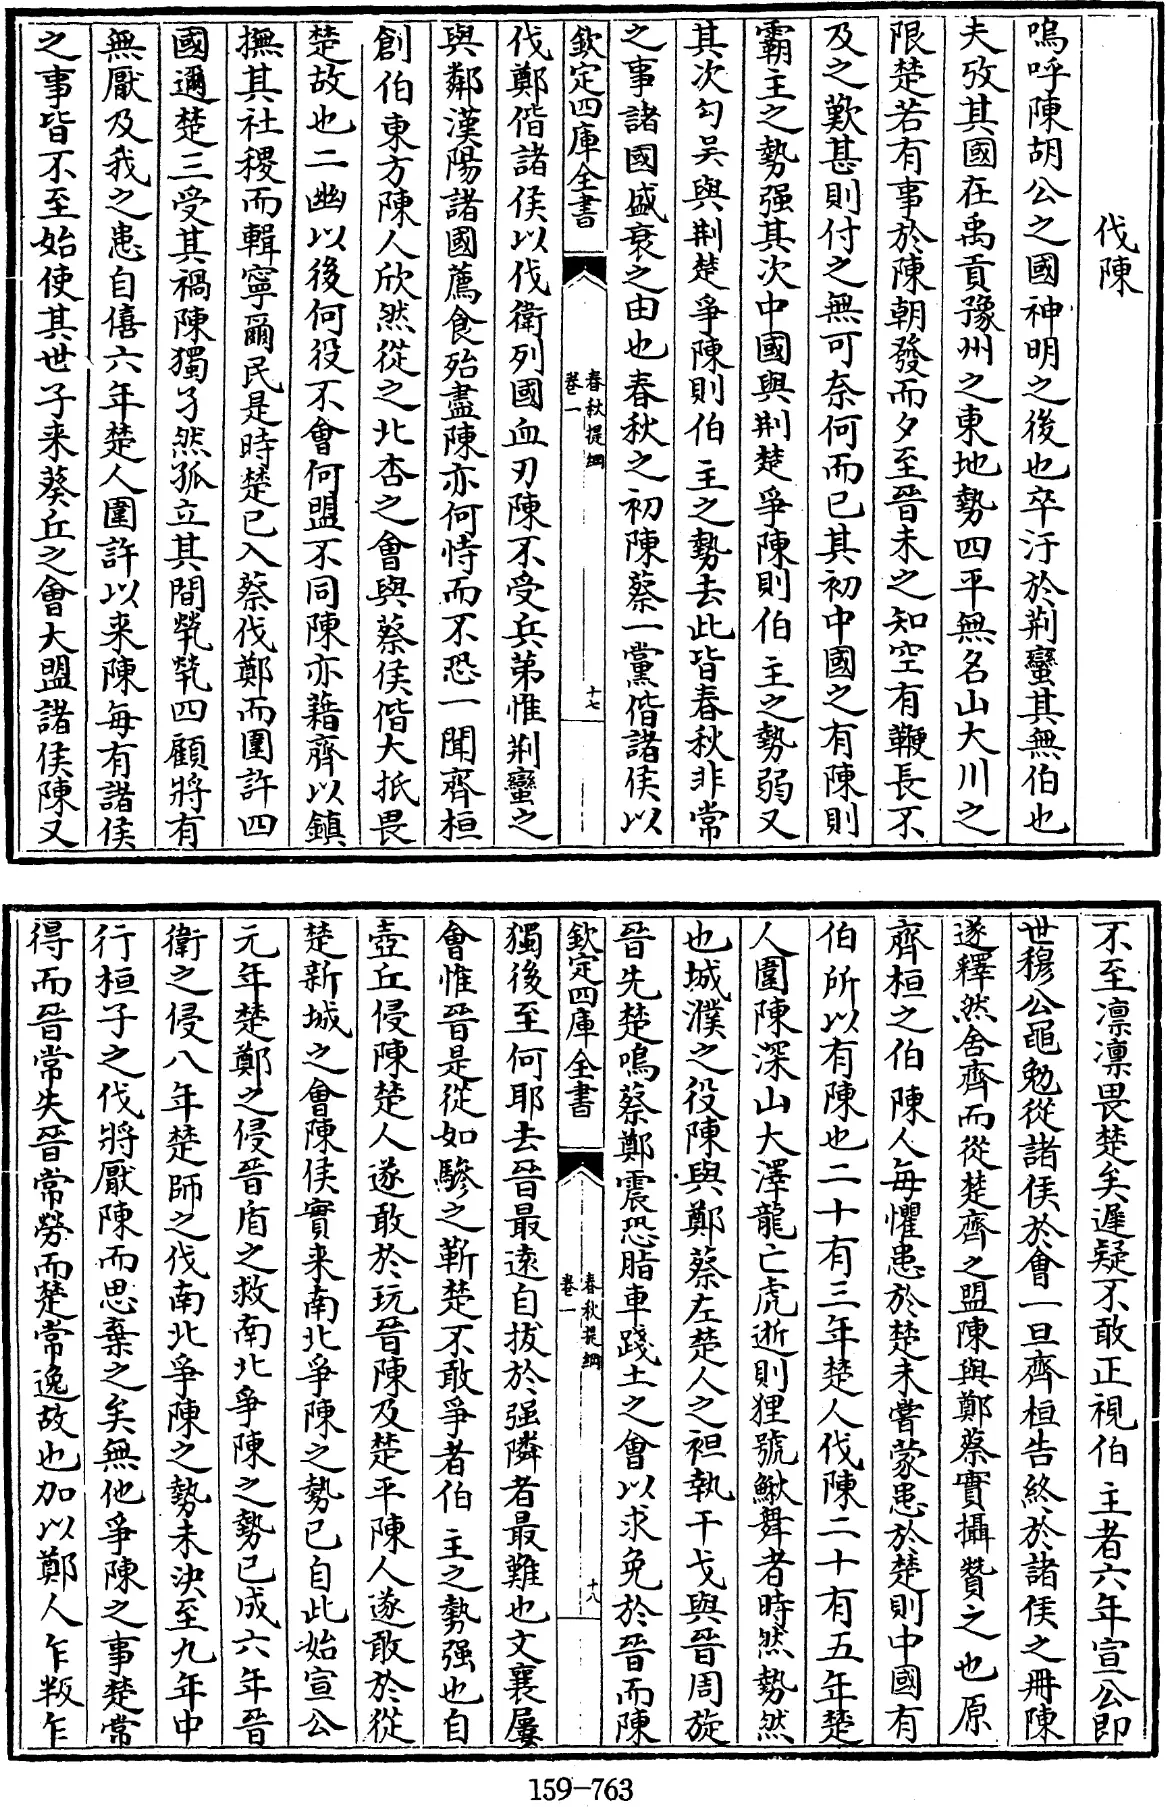 伐陳
嗚呼陳胡公之國神明之後也卒汙於荆蠻其無伯也
夫攷其國在禹貢豫州之東地勢四平無名山大川之
限楚若有事於陳朝發而夕至晉未之知空有鞭長不
及之歎甚則付之無可奈何而已其初中國之有陳則
霸主之勢强其次中國與荆楚爭陳則伯主之勢弱又
其次勾吴與荆楚爭陳則伯主之勢去此皆春秋非常
之事諸國盛衰之由也春秋之初陳蔡一黨偕諸侯以
欽定四庫全書
春秋提綱
卷一
十七
伐鄭偕諸侯以伐衛列國血刃陳不受兵弟惟荆蠻之
與鄰漢陽諸國薦食殆盡陳亦何恃而不恐一聞齊桓
創伯東方陳人欣然從之北杏之會與蔡侯偕大抵畏
楚故也二幽以後何役不會何盟不同陳亦藉齊以鎮
撫其社稷而輯寧爾民是時楚已入蔡伐鄭而圍許四
國邇楚三受其禍陳獨孑然孤立其間煢煢四顧將有
無厭及我之患自僖六年楚人圍許以来陳每有諸侯
之事皆不至始使其世子来葵丘之會大盟諸侯陳又
不至凛凛畏楚矣遲疑不敢正視伯主者六年宣公即
世穆公黽勉從諸侯於會一旦齊桓告終於諸侯之冊陳
遂釋然舍齊而從楚齊之盟陳與鄭蔡實攝賛之也原
齊桓之伯陳人每懼患於楚未嘗蒙患於楚則中國有
伯所以有陳也二十有三年楚人伐陳二十有五年楚
人圍陳深山大澤龍亡虎逝則狸號鰍舞者時然勢然
也城濮之役陳與鄭蔡左楚人之袒執干戈與晉周旋
晉先楚鳴蔡鄭震恐脂車踐土之會以求免於晉而陳
欽定四庫全書
春秋提綱
卷一
十八
獨後至何耶去晉最遠自拔於强隣者最難也文襄屢
會惟晉是從如驂之靳楚不敢爭者伯主之勢强也自
壺丘侵陳楚人遂敢於玩晉陳及楚平陳人遂敢於從
楚新城之會陳侯實来南北爭陳之勢已自此始宣公
元年楚鄭之侵晉盾之救南北爭陳之勢已成六年晉
衛之侵八年楚師之伐南北爭陳之勢未决至九年中
行桓子之伐將厭陳而思棄之矣無他爭陳之事楚常
得而晉常失晉常勞而楚常逸故也加以鄭人乍叛乍
159-763